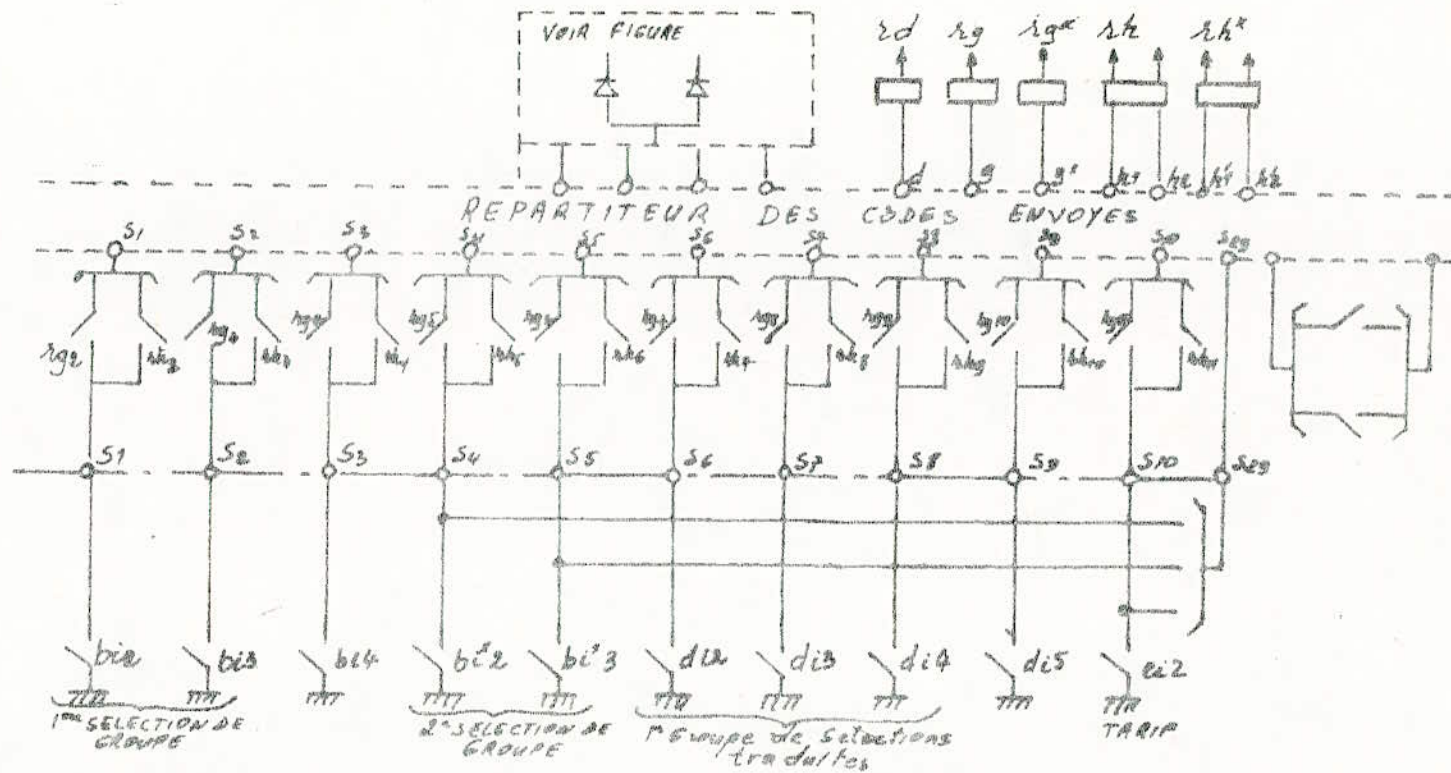 VOIR FIGURE
rd rg rg* rh rh*
d g g' h1 h2 h'1 h'2
REPARTITEUR DES CODES ENVOYES
S1 S2 S3 S4 S5 S6 S7 S8 S9 S10 S29
rg2 rh2 rg3 rh3 rg4 rh4 rg5 rh5 rh6 rh7 rg8 rh8 rg9 rh9 rg10 rh10 rh11
S1 S2 S3 S4 S5 S6 S7 S8 S9 S10 S29
bi2 bi3 bi4 bi'2 bi'3 di2 di3 di4 di5 ei2
1ère SELECTION DE GROUPE
2e SELECTION DE GROUPE
1er Groupe de Sélections traduites
TARIF